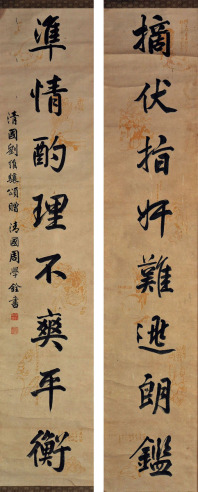 摘伏指奸難逃朗鑑
準情酌理不爽平衡
清國劉俊驤頌贈 清國周學銓書